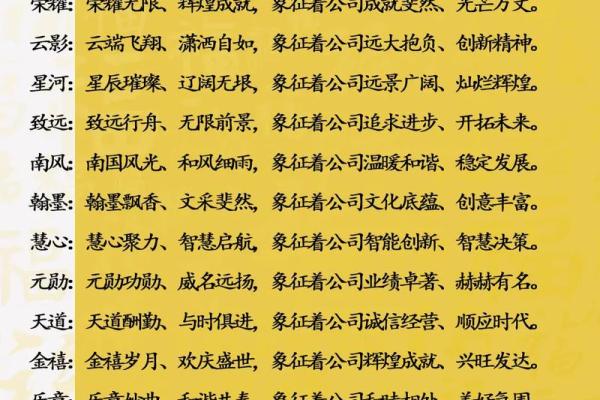 荣耀：荣耀无限、辉煌成就，象征着公司成就斐然、光芒万丈。
云影：云端飞翔、潇洒自如，象征着公司远大抱负、创新精神。
星河：星辰璀璨、辽阔无垠，象征着公司远景广阔、灿烂辉煌。
致远：致远行舟、无限前景，象征着公司追求进步、开拓未来。
南风：南国风光、和风细雨，象征着公司温暖和谐、稳定发展。
翰墨：翰墨飘香、文采斐然，象征着公司文化底蕴、创意丰富。
慧心：慧心聚力、智慧启航，象征着公司智能创新、智慧决策。
元勋：元勋功勋、威名远扬，象征着公司业绩卓著、赫赫有名。
天道：天道酬勤、与时俱进，象征着公司诚信经营、顺应时代。
金禧：金禧岁月、欢庆盛世，象征着公司辉煌成就、兴旺发达。
乐章：乐章妙曲、和谐共奏，象征着公司和睦相处、美好氛围